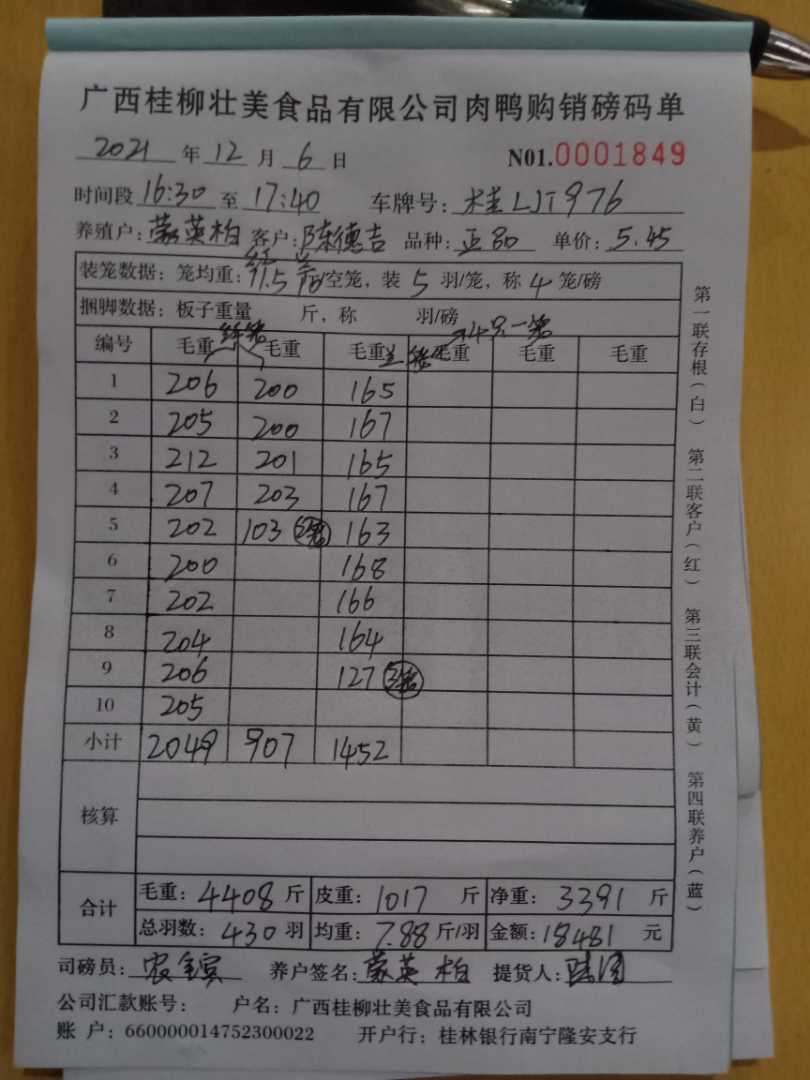 广西桂柳壮美食品有限公司肉鸭购销磅码单
2021 年 12 月 6 日 N01.0001849
时间段 16:30 至 17:40 车牌号: 桂LJT976
养殖户: 蒙英柏 客户: 陈德吉 品种: 正品 单价: 5.45
装笼数据: 笼均重: 11.5 斤/空笼, 装 5 羽/笼, 称 4 笼/磅
捆脚数据: 板子重量 斤, 称 羽/磅
4只一笼
编号 毛重 毛重 毛重 毛重 毛重 毛重
1 206 200 165
2 205 200 167
3 212 201 165
4 207 203 167
5 202 103 163
6 200 168
7 202 166
8 204 164
9 206 127
10 205
小计 2049 907 1452
核算
合计 毛重: 4408 斤 皮重: 1017 斤 净重: 3391 斤
总羽数: 430 羽 均重: 7.88 斤/羽 金额: 18481 元
司磅员: 养户签名: 蒙英柏 提货人:
公司汇款账号: 户名: 广西桂柳壮美食品有限公司
账 户: 660000014752300022 开户行: 桂林银行南宁隆安支行
第一联存根(白) 第二联客户(红) 第三联会计(黄) 第四联养户(蓝)